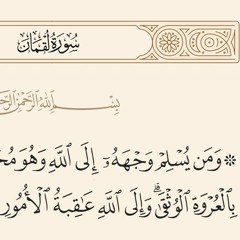 سُورَةُ لُقْمَان
بِسْمِ اللَّهِ الرَّحْمَٰنِ
۞ وَمَن يُسْلِمْ وَجْهَهُۥٓ إِلَى ٱللَّهِ وَهُوَ
بِٱلْعُرْوَةِ ٱلْوُثْقَىٰۗ وَإِلَى ٱللَّهِ عَـٰقِبَةُ ٱلْأُمُورِ